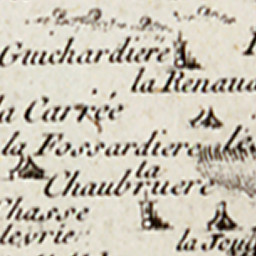 Guichardiere
la Renaud
la Carrée
la Fossardiere
la
Chaubruere
Chasse
levrie
la